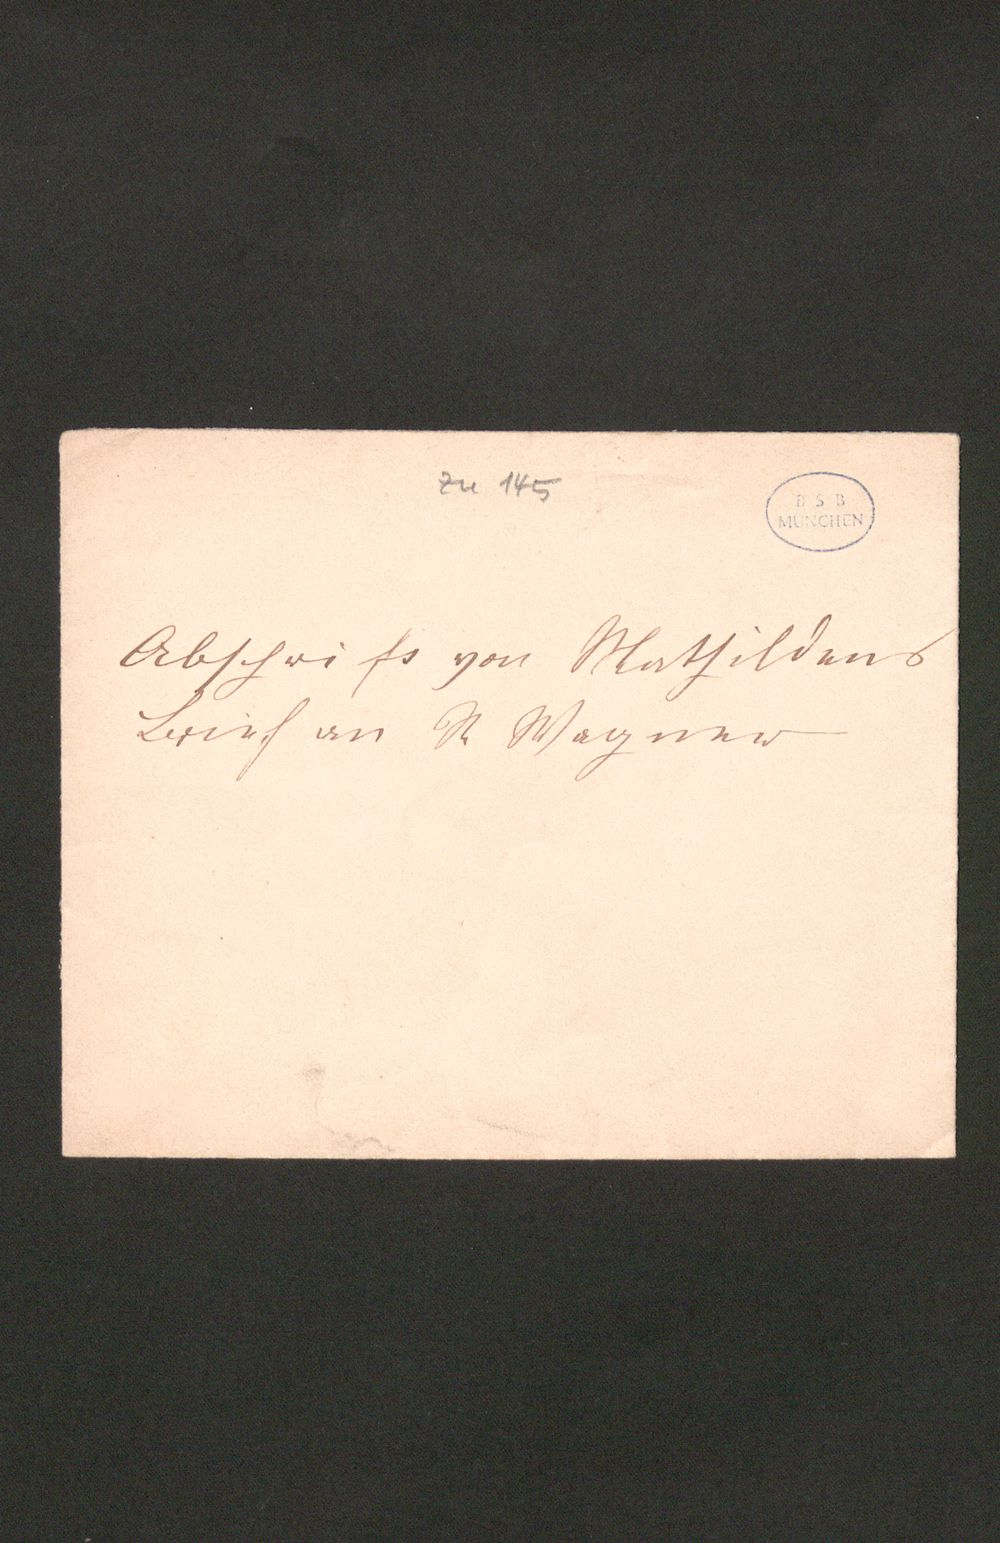 Zu 145
B S B
MÜNCHEN
Abschrift von Mathildens
Brief an R Wagner